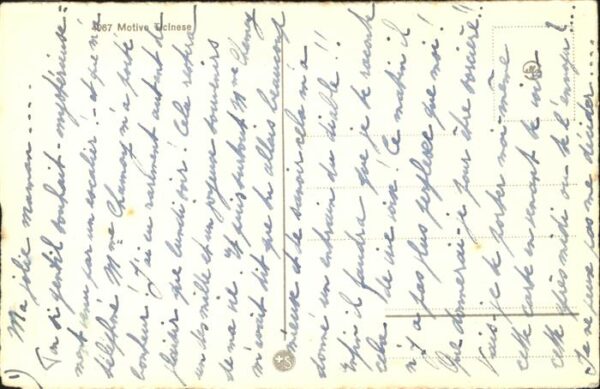 4067 Motive Ticinese
1)
Ma jolie maman....
Ton si gentil souhait - mystérieuse-
ment venu par un escalier! - et que m'a
téléphoné Mme m'a porté
bonheur! J'ai eu rarement autant de
plaisir que lundi soir! Cela restera
un des mille et un joyeux souvenirs
de ma vie. Et puis surtout Mme
m'avait dit que tu allais beaucoup
mieux et de savoir cela m'a
donné un entrain du diable!!
Enfin il faudra que je te raconte
cela de vive voix! Ce matin il
n'y a pas plus perplexe que moi!
Que donnerai-je pour être sorcière!!
Vais-je te porter moi-même
cette carte en venant te voir
cette après-midi ou te l'envoyer?
Je ne peux pas me décider....